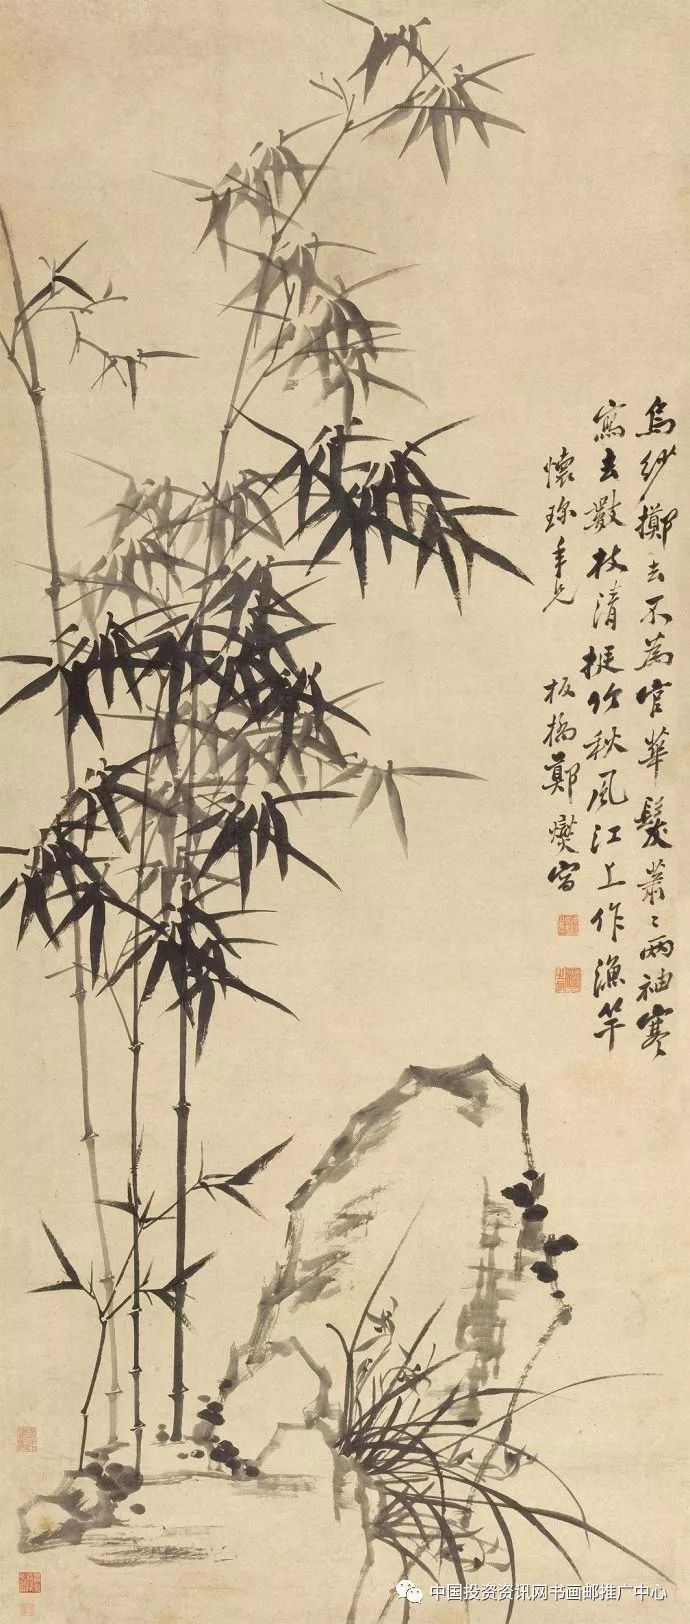 烏紗擲去不為官華髮蕭〻兩袖寒
寫去數枝清挺竹秋風江上作漁竿
懷 年兄 板橋鄭燮寫
中国投资资讯网书画邮推广中心